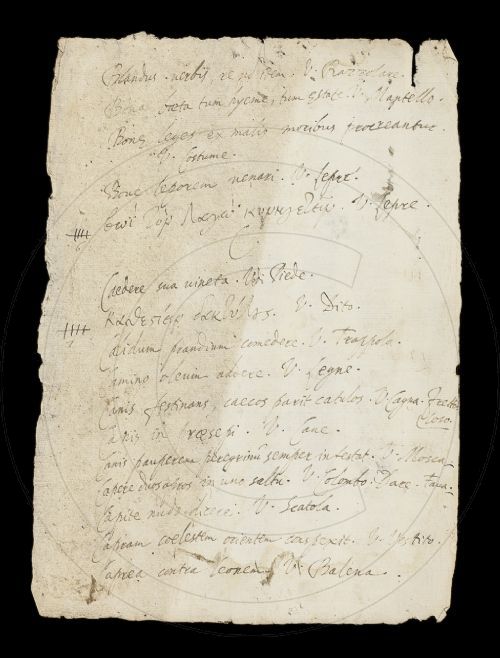 Blandus verbis, re . V. Razzolare.
Bona tum hyeme, tum estate. V. Mantello.
Bonę leges ex malis moribus procreantur.
V. Costume.
Bove leporem venari. V. Lepre.
τὸν λαγὼ . V. Lepre.
C
Caedere sua vineta. V. Piede.
δακτύλῳ. V. Dito.
Calidum prandium comedere. V. Trappola.
Camino oleum addere. V. Legne.
Canis festinans, caecos parit catulos. V. Cagna. Fretto-
loso.
Canis in praesepi. V. Cane.
Canis pauperem peregrinum semper infestat. V. Mosca.
Capere duos apros in uno saltu. V. Colombo. Dare. Fava.
Capite nudo dicere. V. Scatola.
Capram coelestem orientem conspexit. V. Vestito.
Caprea contra Leonem. V. Balena.